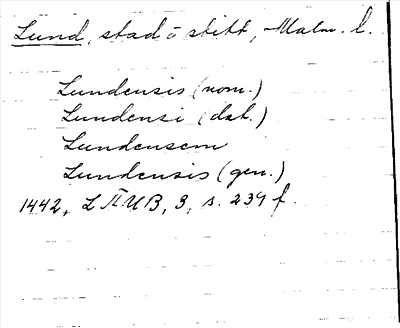 Lund, stad o stift, Malm. l.
Lundensis (nom.)
Lundensi (dat.)
Lundensem
Lundensis (gen.)
1442, LÄUB, 3, s. 239 f.